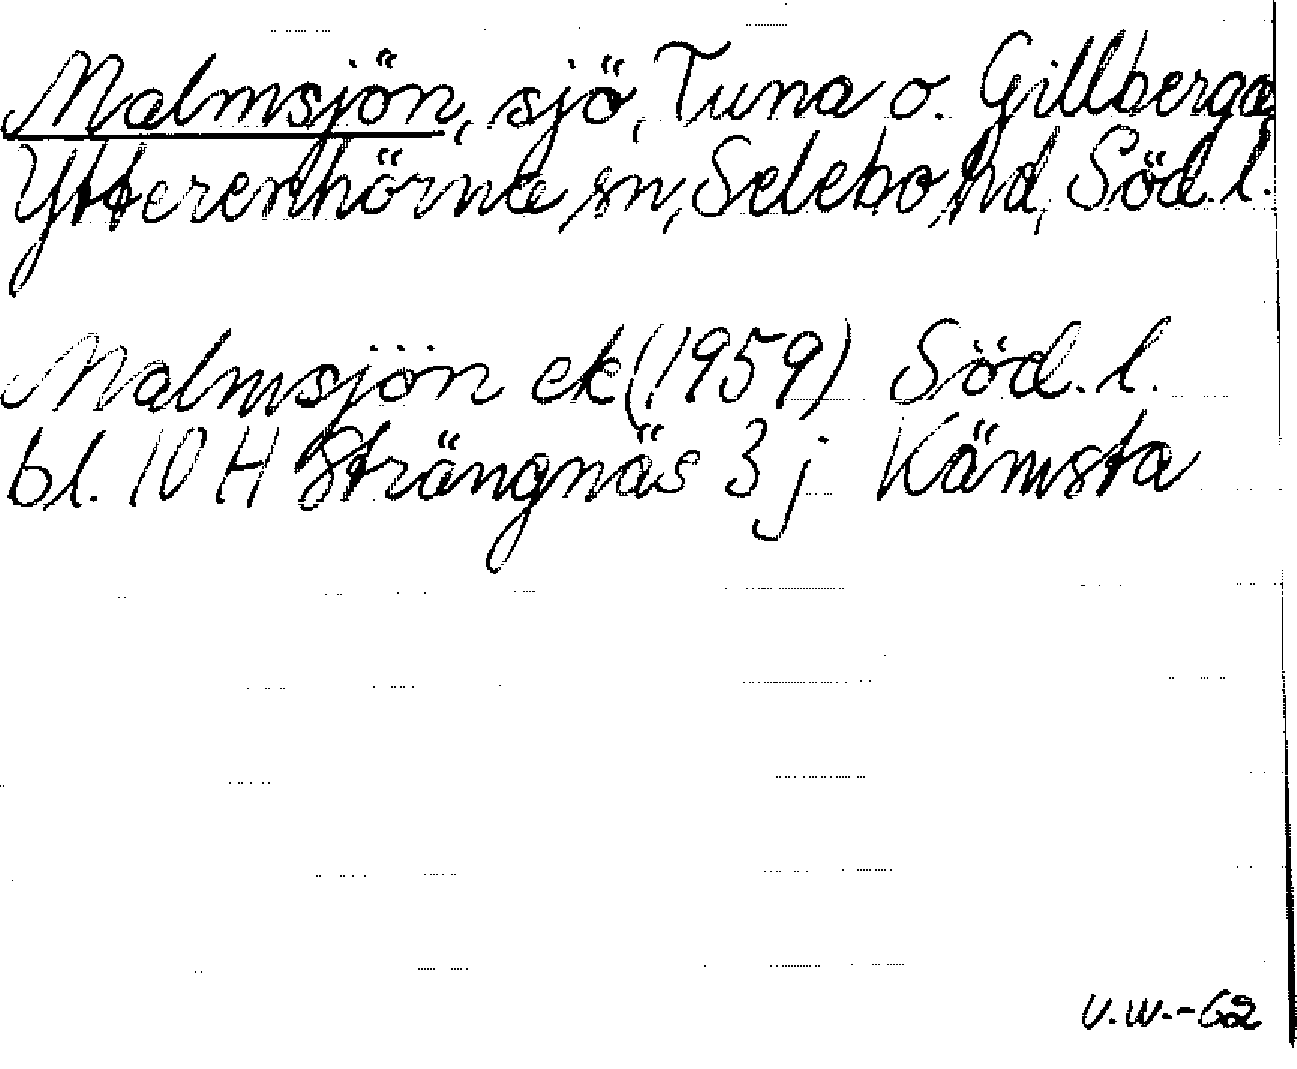 Malmsjön, sjö, Tuna o. Gillberga
Ytterenhörna sn, Selebo hd, Söd. l.
Malmsjön ek (1959) Söd. l.
bl. 10 H Strängnäs 3 j Kämsta
V.W.-62